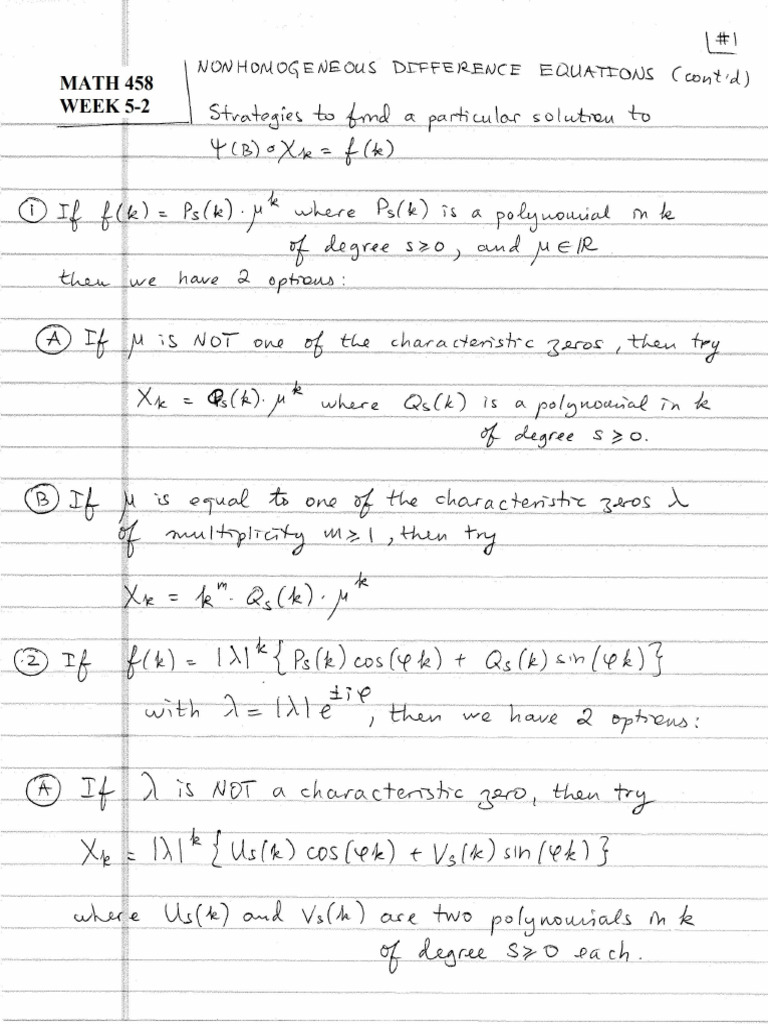 #1
MATH 458
WEEK 5-2
NONHOMOGENEOUS DIFFERENCE EQUATIONS (cont'd)
Strategies to find a particular solution to
Ψ(B)∘Xₖ = f(k)
① If f(k) = Pₛ(k)·μᵏ where Pₛ(k) is a polynomial in k
of degree s≥0, and μ∈ℝ
then we have 2 options:
Ⓐ If μ is NOT one of the characteristic zeros, then try
Xₖ = Qₛ(k)·μᵏ where Qₛ(k) is a polynomial in k
of degree s≥0.
Ⓑ If μ is equal to one of the characteristic zeros λ
of multiplicity m≥1, then try
Xₖ = kᵐ·Qₛ(k)·μᵏ
② If f(k) = |λ|ᵏ{Pₛ(k)cos(φk) + Qₛ(k)sin(φk)}
with λ = |λ|e^{±iφ}, then we have 2 options:
Ⓐ If λ is NOT a characteristic zero, then try
Xₖ = |λ|ᵏ{Uₛ(k)cos(φk) + Vₛ(k)sin(φk)}
where Uₛ(k) and Vₛ(k) are two polynomials in k
of degree s≥0 each.